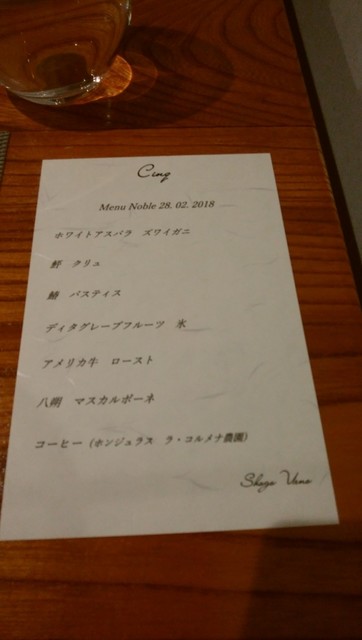 Cinq
Menu Noble 28. 02. 2018
ホワイトアスパラ ズワイガニ
鮃 クリュ
鰆 パスティス
ディタグレープフルーツ 氷
アメリカ牛 ロースト
八朔 マスカルポーネ
コーヒー (ホンジュラス ラ・コルメナ農園)